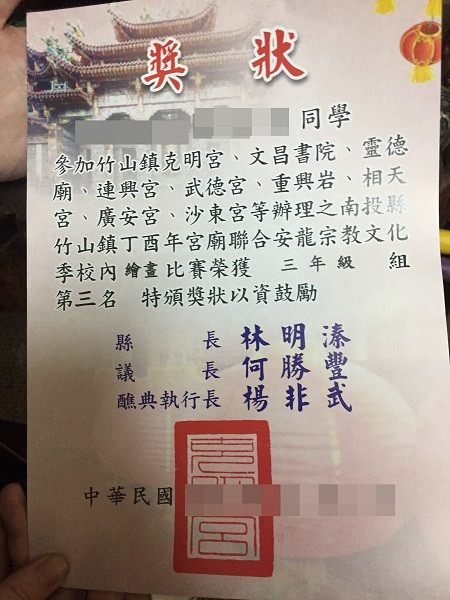 獎狀
同學
參加竹山鎮克明宮、文昌書院、靈德
廟、連興宮、武德宮、重興岩、相天
宮、廣安宮、沙東宮等辦理之南投縣
竹山鎮丁酉年宮廟聯合安龍宗教文化
季校內繪畫比賽榮獲 三年級 組
第三名 特頒獎狀以資鼓勵
縣長 林明溱
議長 何勝豐
醮典執行長 楊非武
中華民國